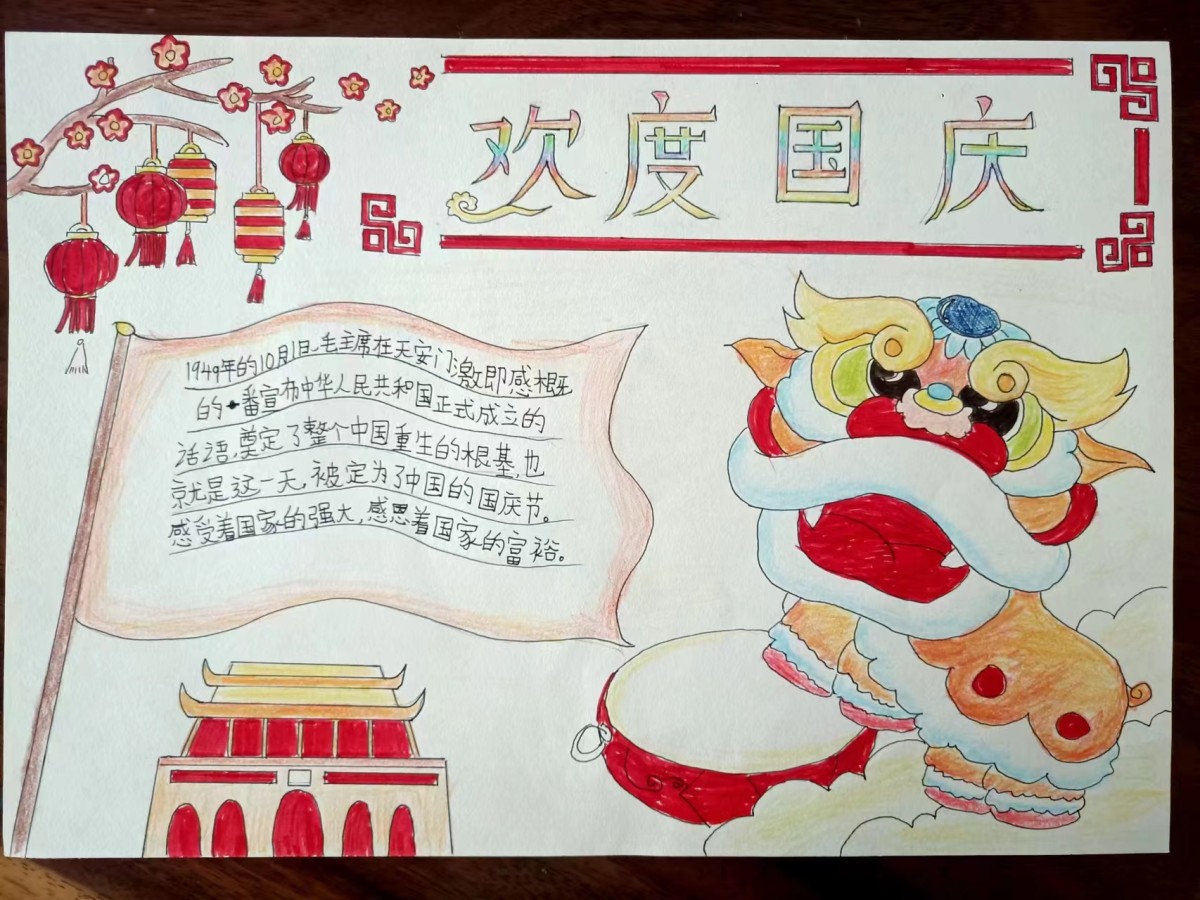 欢度国庆
1949年的10月1日、毛主席在天安门激即感概
的一番宣布中华人民共和国正式成立的
话语,奠定了整个中国重生的根基,也
就是这一天,被定为了中国的国庆节。
感受着国家的强大,感恩着国家的富裕。